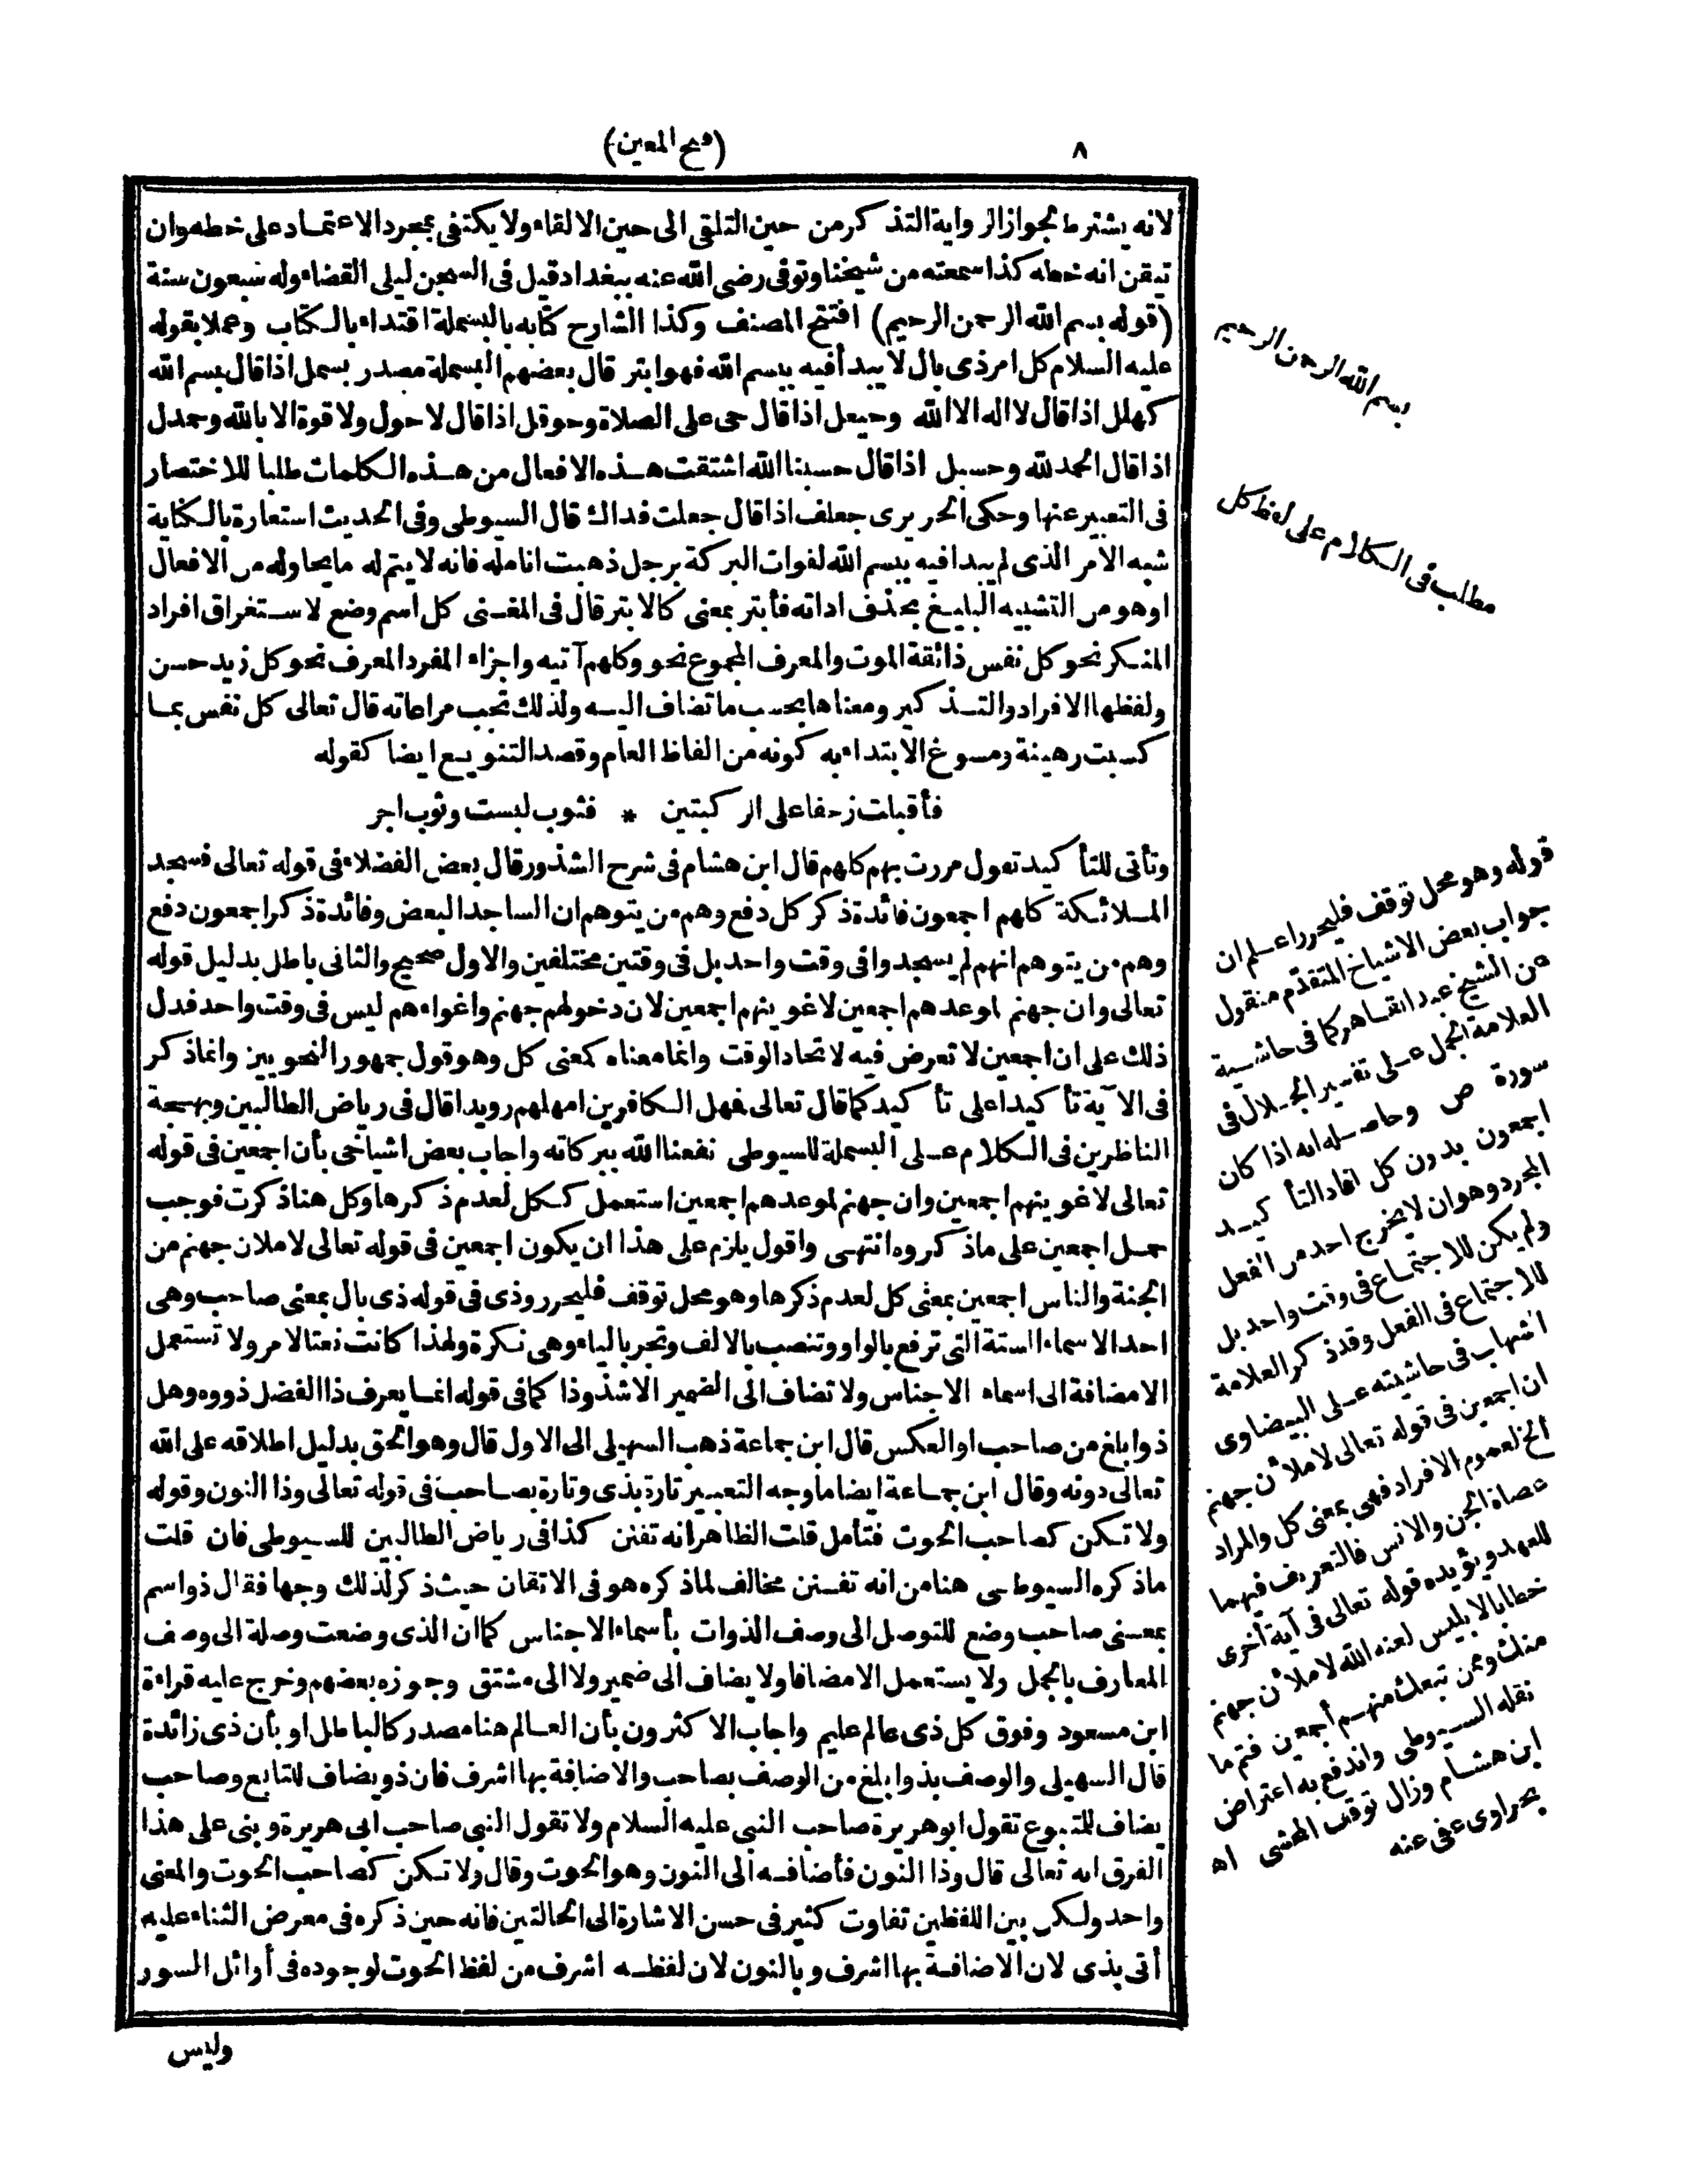 ٨
(فتح المعين)
لانه يشترط لجواز الرواية التذكر من حين التلقى الى حين الالقاء ولا يكتفى بمجرد الاعتماد على خطه وان
تيقن انه خطه كذا سمعته من شيخنا وتوفى رضى الله عنه ببغداد قيل فى السجن ليلى القضاء وله سبعون سنة
(قوله بسم الله الرحمن الرحيم) افتتح المصنف وكذا الشارح كتابه بالبسملة اقتداء بالكتاب وعملا بقوله
عليه السلام كل امر ذى بال لا يبدأ فيه ببسم الله فهو ابتر قال بعضهم البسملة مصدر بسمل اذا قال بسم الله
كهلل اذا قال لا اله الا الله وحيعل اذا قال حى على الصلاة وحوقل اذا قال لا حول ولا قوة الا بالله وحمدل
اذا قال الحمد لله وحسبل اذا قال حسبنا الله اشتقت هذه الافعال من هذه الكلمات طلبا للاختصار
فى التعبير عنها وحكى الحريرى جعلف اذا قال جعلت فداك قال السيوطى وفى الحديث استعارة بالكناية
شبه الامر الذى لم يبدا فيه ببسم الله لفوات البركة برجل ذهبت انامله فانه لا يتم له ما يحاوله من الافعال
او هو من التشبيه البليغ بحذف اداته فأبتر بمعنى كالابتر قال فى المغنى كل اسم وضع لاستغراق افراد
المنكر نحو كل نفس ذائقة الموت والمعرف المجموع نحو وكلهم آتيه واجزاء المفرد المعرف نحو كل زيد حسن
ولفظها الافراد والتذكير ومعناها بحسب ما تضاف اليه ولذلك تجب مراعاته قال تعالى كل نفس بما
كسبت رهينة ومسوغ الابتداء به كونه من الفاظ العام وقصد التنويع ايضا كقوله
فأقبلت زحفا على الركبتين * فثوب لبست وثوب اجر
وتأتى للتأكيد تقول مررت بهم كلهم قال ابن هشام فى شرح الشذور قال بعض الفضلاء فى قوله تعالى فسجد
الملائكة كلهم اجمعون فائدة ذكر كل دفع وهم من يتوهم ان الساجد البعض وفائدة ذكر اجمعون دفع
وهم من يتوهم انهم لم يسجدوا فى وقت واحد بل فى وقتين مختلفين والاول صحيح والثانى باطل بدليل قوله
تعالى وان جهنم لموعدهم اجمعين لاغوينهم اجمعين لان دخولهم جهنم واغواءهم ليس فى وقت واحد فدل
ذلك على ان اجمعين لا تعرض فيه لاتحاد الوقت وانما معناه كمعنى كل وهو قول جمهور النحويين وانما ذكر
فى الآية تأكيدا على تأكيد كما قال تعالى فمهل الكافرين امهلهم رويدا قال فى رياض الطالبين وبهجة
الناظرين فى الكلام على البسملة للسيوطى نفعنا الله ببركاته واجاب بعض اشياخى بأن اجمعين فى قوله
تعالى لاغوينهم اجمعين وان جهنم لموعدهم اجمعين استعمل ككل لعدم ذكرها وكل هنا ذكرت فوجب
حمل اجمعين على ما ذكروه انتهى واقول يلزم على هذا ان يكون اجمعين فى قوله تعالى لاملان جهنم من
الجنة والناس اجمعين بمعنى كل لعدم ذكرها وهو محل توقف فليحرر وذى فى قوله ذى بال بمعنى صاحب وهى
احد الاسماء الستة التى ترفع بالواو وتنصب بالالف وتجر بالياء وهى نكرة ولهذا كانت نعتا لامر ولا تستعمل
الا مضافة الى اسماء الاجناس ولا تضاف الى الضمير الا شذوذا كما فى قوله انما يعرف ذا الفضل ذووه وهل
ذو ابلغ من صاحب او العكس قال ابن جماعة ذهب السهيلى الى الاول قال وهو الحق بدليل اطلاقه على الله
تعالى دونه وقال ابن جماعة ايضا ما وجه التعبير تارة بذى وتارة بصاحب فى قوله تعالى وذا النون وقوله
ولا تكن كصاحب الحوت فتأمل قلت الظاهر انه تفنن كذا فى رياض الطالبين للسيوطى فان قلت
ماذكره السيوطى هنا من انه تفنن مخالف لما ذكره هو فى الاتقان حيث ذكر لذلك وجها فقال ذو اسم
بمعنى صاحب وضع للتوصل الى وصف الذوات بأسماء الاجناس كما ان الذى وضعت وصلة الى وصف
المعارف بالجمل ولا يستعمل الا مضافا ولا يضاف الى ضمير ولا الى مشتق وجوزه بعضهم وخرج عليه قراءة
ابن مسعود وفوق كل ذى عالم عليم واجاب الاكثرون بأن العالم هنا مصدر كالباطل او بأن ذى زائدة
قال السهيلى والوصف بذو ابلغ من الوصف بصاحب والاضافة بها اشرف فان ذو يضاف للتابع وصاحب
يضاف للمتبوع تقول ابو هريرة صاحب النبى عليه السلام ولا تقول النبى صاحب ابى هريرة وبنى على هذا
الفرق انه تعالى قال وذا النون فأضافه الى النون وهو الحوت وقال ولا تكن كصاحب الحوت والمعنى
واحد ولكن بين اللفظين تفاوت كثير فى حسن الاشارة الى الحالتين فانه حين ذكره فى معرض الثناء عليه
أتى بذى لان الاضافة بها اشرف وبالنون لان لفظه اشرف من لفظ الحوت لوجوده فى أوائل السور
وليس
بسم الله الرحمن الرحيم
مطلب فى الكلام على لفظ كل
قوله وهو محل توقف فليحرر اعلم ان
جواب بعض الاشياخ المتقدم منقول
عن الشيخ عبد القاهر كما فى حاشية
العلامة الجمل على تفسير الجلال فى
سورة ص وحاصله انه اذا كان
اجمعون بدون كل افاد التأكيد
المجرد وهو ان لا يخرج احد من الفعل
ولم يكن للاجتماع فى وقت واحد بل
للاجتماع فى الفعل وقد ذكر العلامة
الشهاب فى حاشيته على البيضاوى
ان اجمعين فى قوله تعالى لاملأن جهنم
الخ لعموم الافراد فهى بمعنى كل والمراد
عصاة الجن والانس فالتعريف فيهما
للعهد ويؤيده قوله تعالى فى آية أخرى
خطابا لابليس لعنه الله لاملأن جهنم
منك وممن تبعك منهم أجمعين فتم ما
نقله السيوطى واندفع به اعتراض
ابن هشام وزال توقف المحشى اه
بحراوى عفى عنه